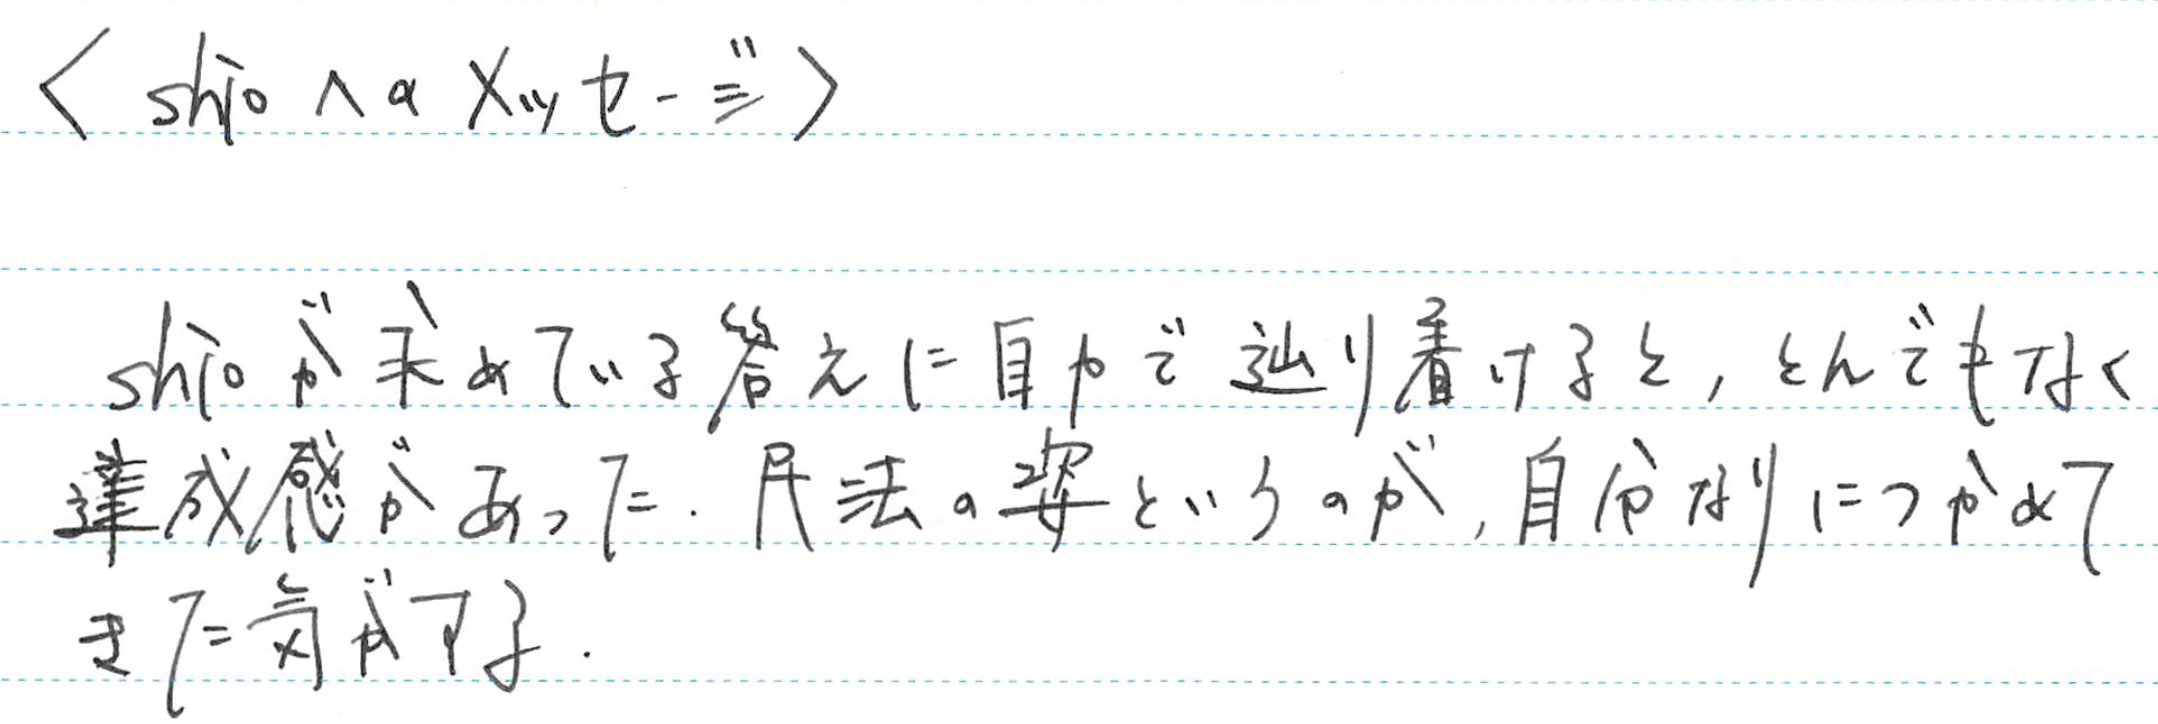 〈shioへのメッセージ〉
shioが求めている答えに自力で辿り着けると，とんでもなく
達成感があった．民法の姿というのが，自分なりにつかめて
きた気がする．